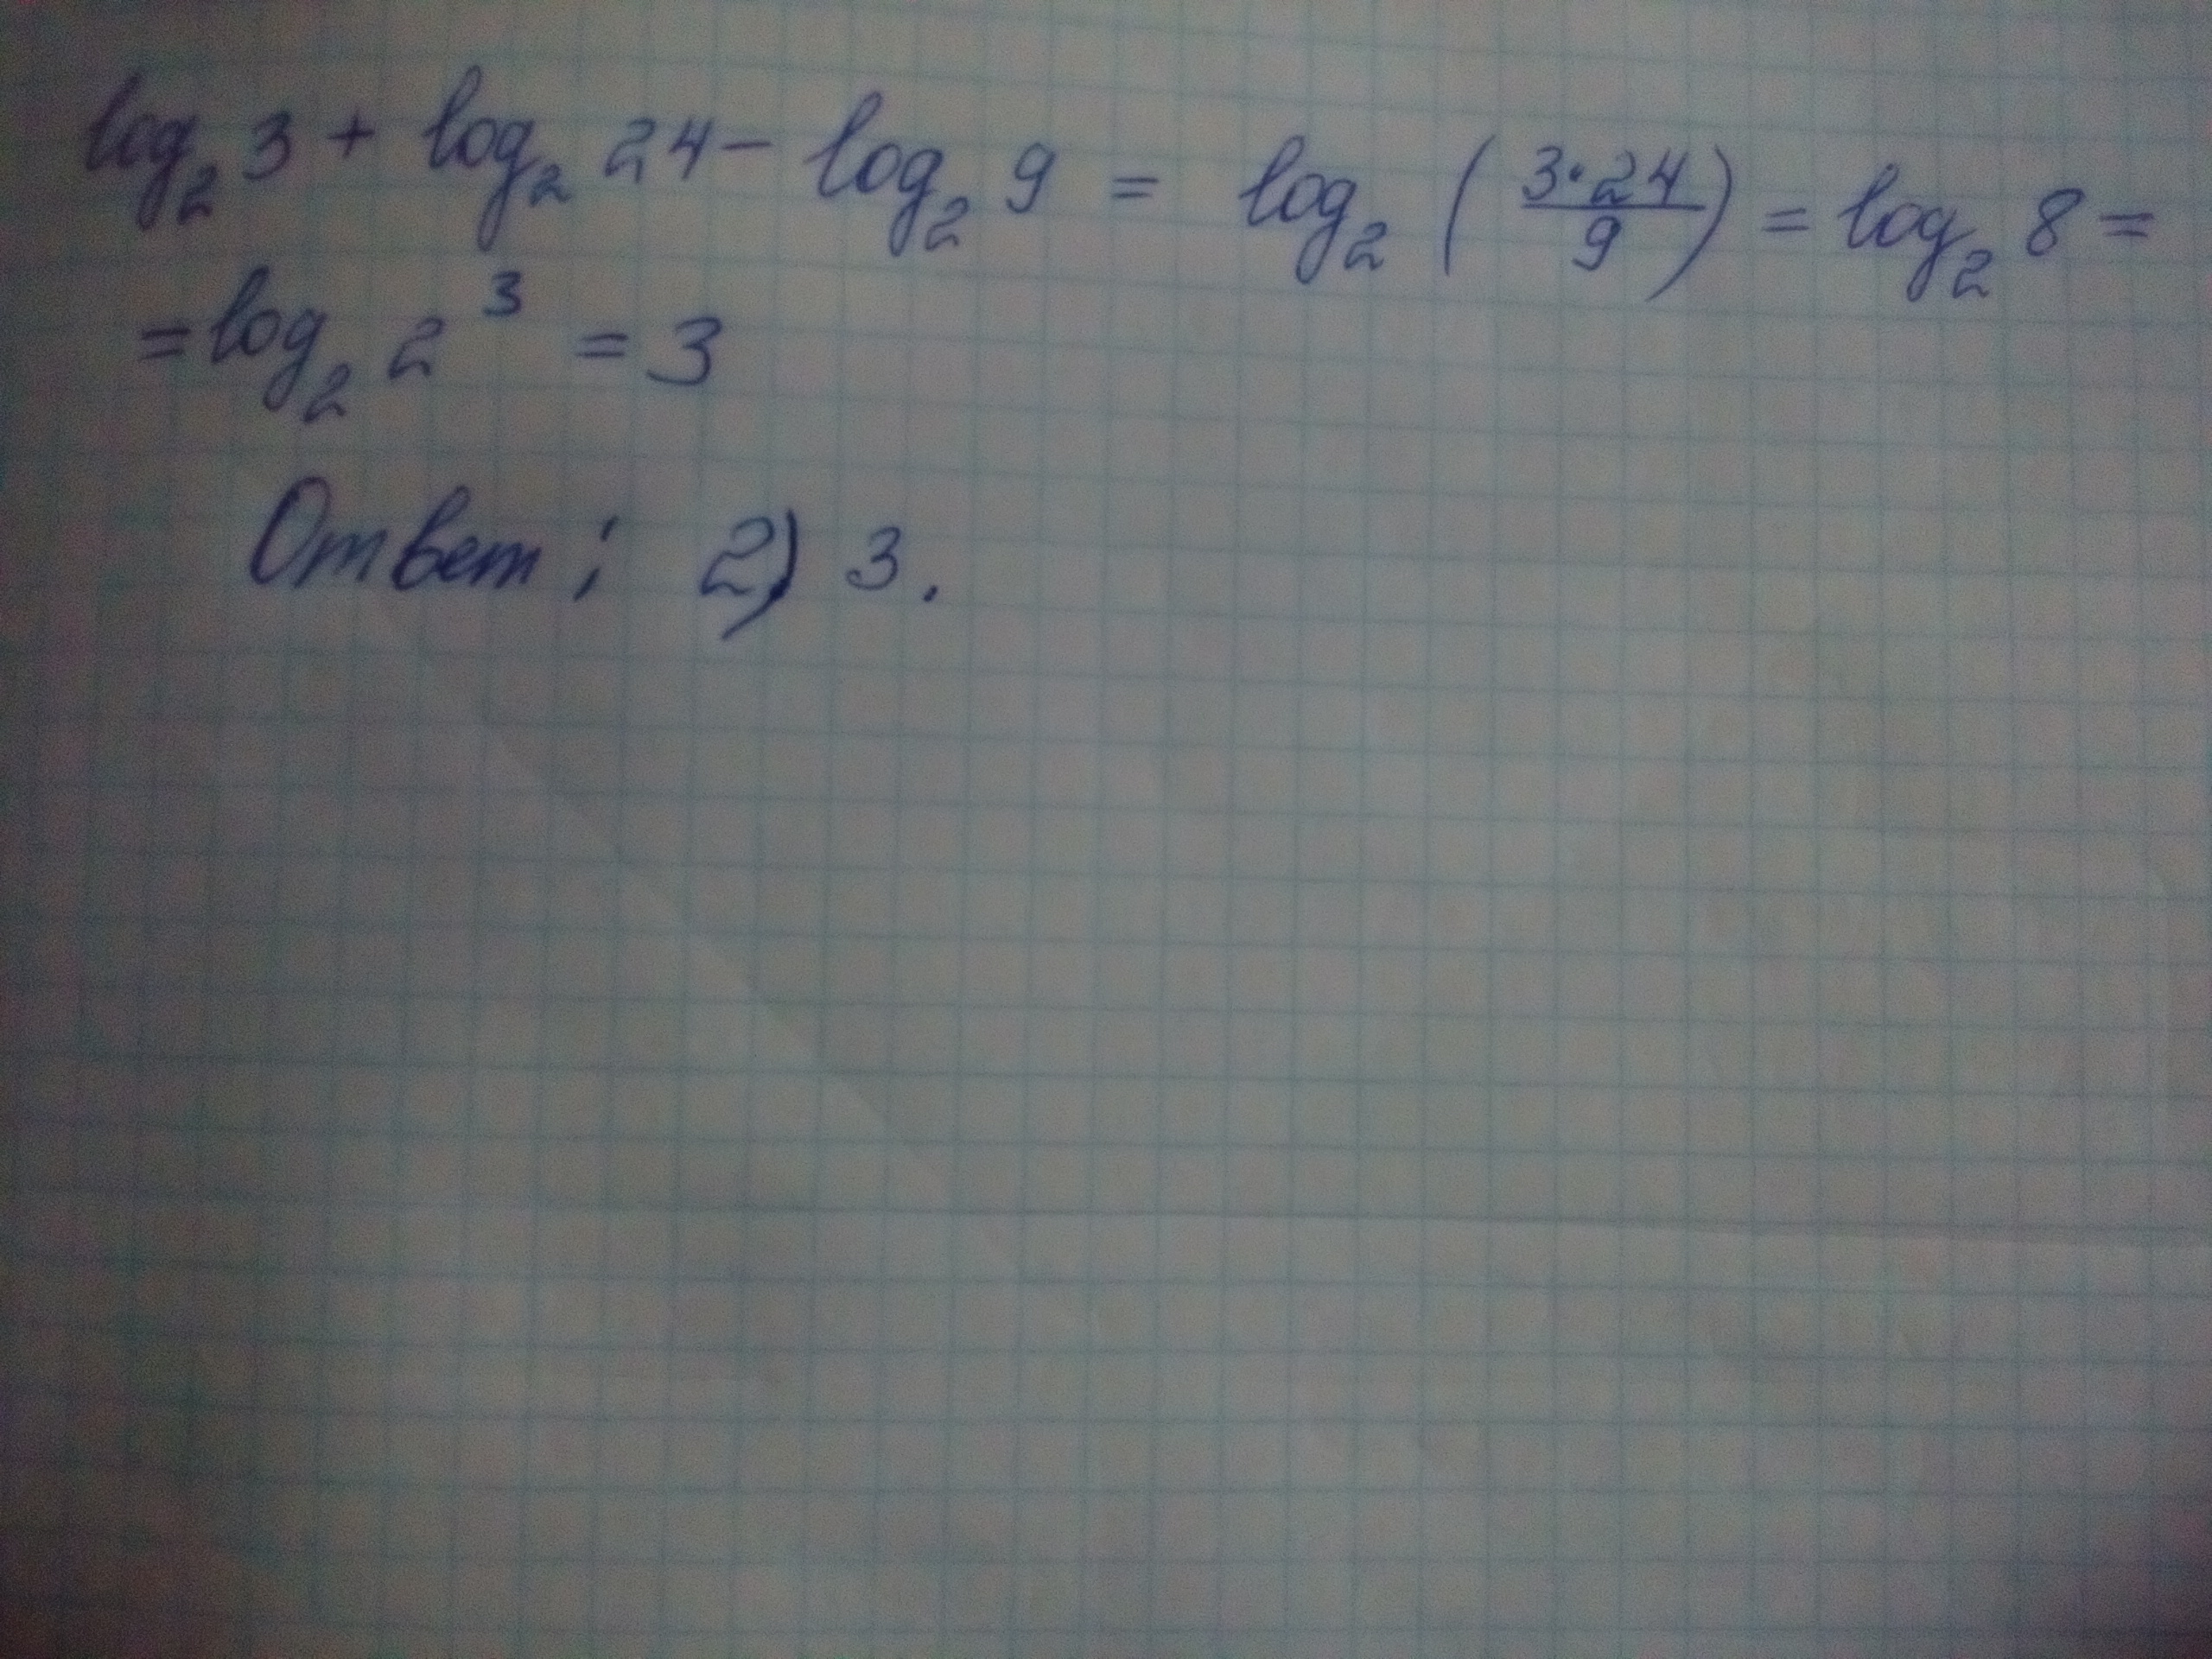 log₂ 3 + log₂ 24 − log₂ 9 = log₂ (3·24/9) = log₂ 8 =
= log₂ 2³ = 3
Ответ: 2) 3.